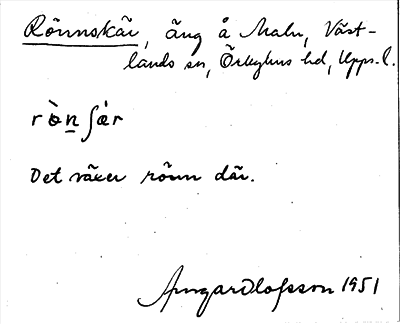 Rönnskär, äng å Maln, Väst-
lands sn, Örbyhus hd, Upps. l.
r ò̀n ʃæ̀r
Det växer rönn där.
Olofsson 1951